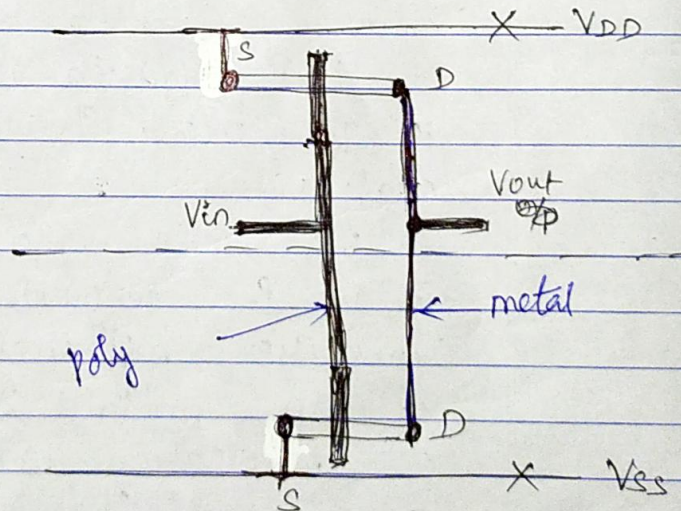 X VDD
S
D
Vin
Vout
O/P
metal
poly
D
X VSS
S